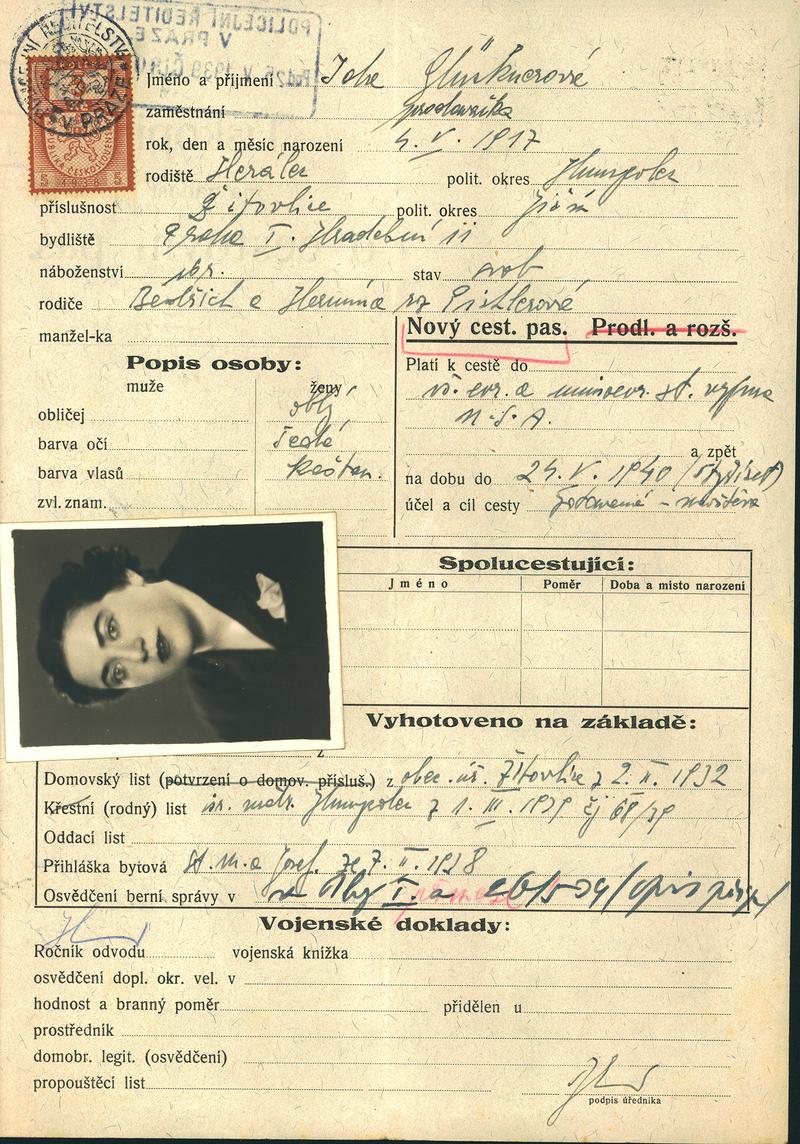 POLICEJNÍ ŘEDITELSTVÍ
V PRAZE
V PRAZE
5 5
Jméno a příjmení
zaměstnání prodavačka
rok, den a měsíc narození 4. V. 1917
rodiště Herálec polit. okres Humpolec
příslušnost Žitovlice polit. okres Jičín
bydliště Praha I. Hradební 11
náboženství isr. stav svob
rodiče Bedřich a Hermína roz Pichlerové
manžel-ka
Nový cest. pas. Prodl. a rozš.
Popis osoby:
muže ženy
Platí k cestě do vš. evr. a mimoevr. st. vyjma
obličej oblý
barva očí šedé
barva vlasů kaštan.
zvl. znam.
a zpět
na dobu do 24. V. 1940
účel a cíl cesty návštěva
Spolucestující:
Jméno Poměr Doba a místo narození
Vyhotoveno na základě:
Domovský list (potvrzení o domov. přísluš.) z obec. úř. Žitovlice z 2. II. 1932
Křestní (rodný) list isr. matr. Humpolec z 1. III. 1939 čj 68/39
Oddací list
Přihláška bytová st. m. a Josef. ze 7. II. 1938
Osvědčení berní správy v
Vojenské doklady:
Ročník odvodu vojenská knížka
osvědčení dopl. okr. vel. v
hodnost a branný poměr přidělen u
prostředník
domobr. legit. (osvědčení)
propouštěcí list
podpis úředníka